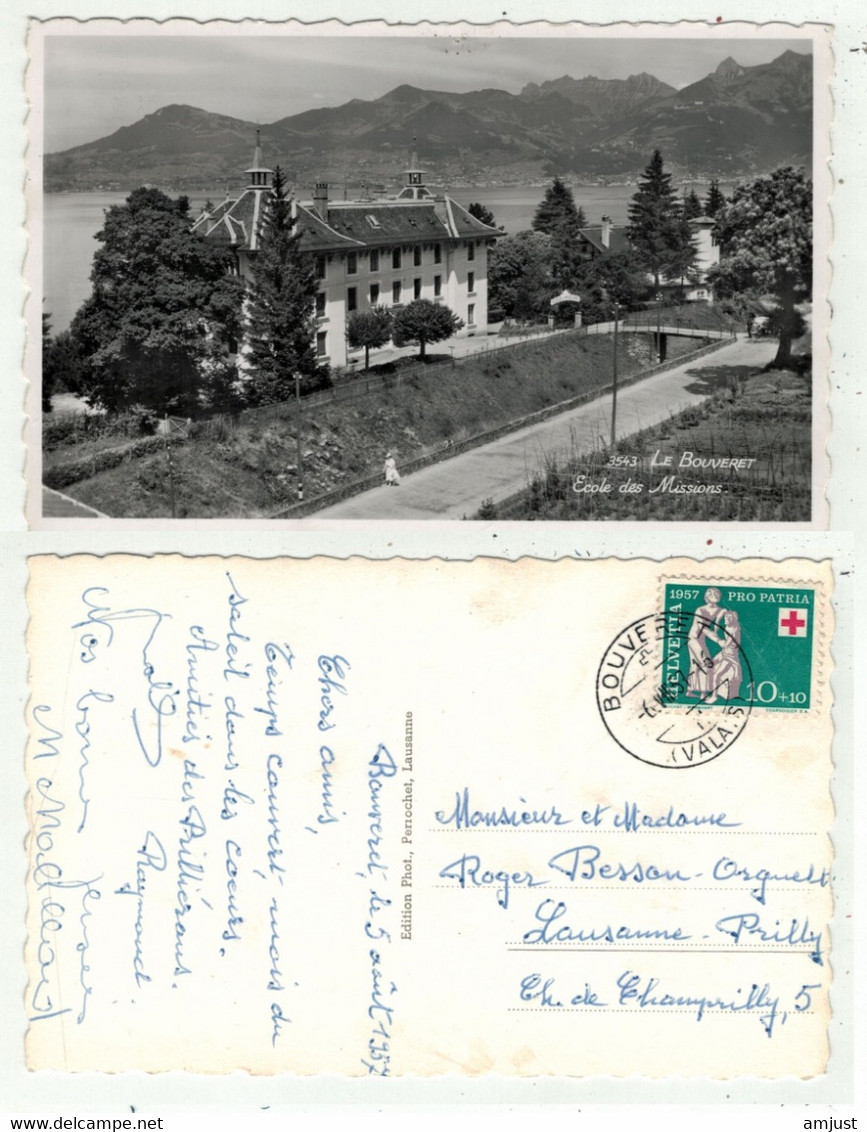 3543 LE BOUVERET
Ecole des Missions.
1957 PRO PATRIA
HELVETIA
10+10
COURVOISIER S.A.
BOUVERET
(VALAIS)
Edition Phot., Perrochet, Lausanne
Monsieur et Madame
Roger Besson-Orguelt
Lausanne-Prilly
Ch. de Champrilly, 5
Bouveret, le 5 août 1957
Chers amis,
Temps couvert, mais du
soleil dans les coeurs.
Amitiés des Prilliérans.
Raymond.
Nos bons
amjust
www.delcampe.net